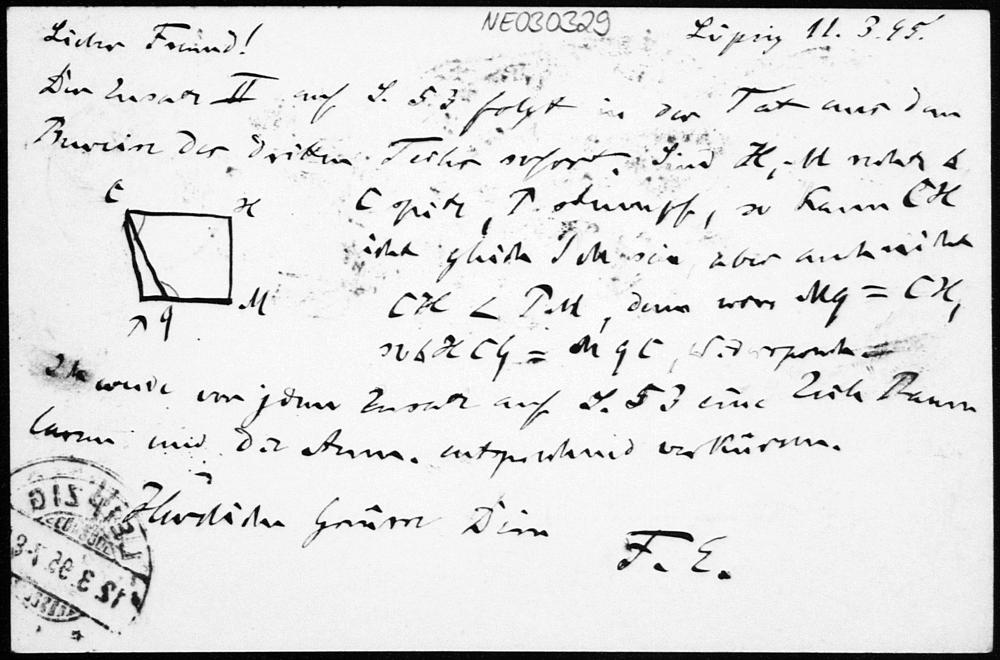 NE030329
Lieber Freund! Leipzig 11. 3. 95.
Der Zusatz II auf S. 53 folgt in der Tat aus dem
Beweise des dritten Teiles sofort. Sind H, M rechte ∡
C spitz, P stumpf, so kann CH
nicht gleich PM sein, aber auch nicht
CH < PM, denn wäre Mq = CH,
so ∡ HCq = MqC, Widerspruch.
Ich werde vor jedem Zusatz auf S. 53 eine Zeile Raum
lassen und die Anm. entsprechend verkürzen.
Herzliche Grüsse Dein
F. E.
C H
P q M
LEIPZIG
12 3 95